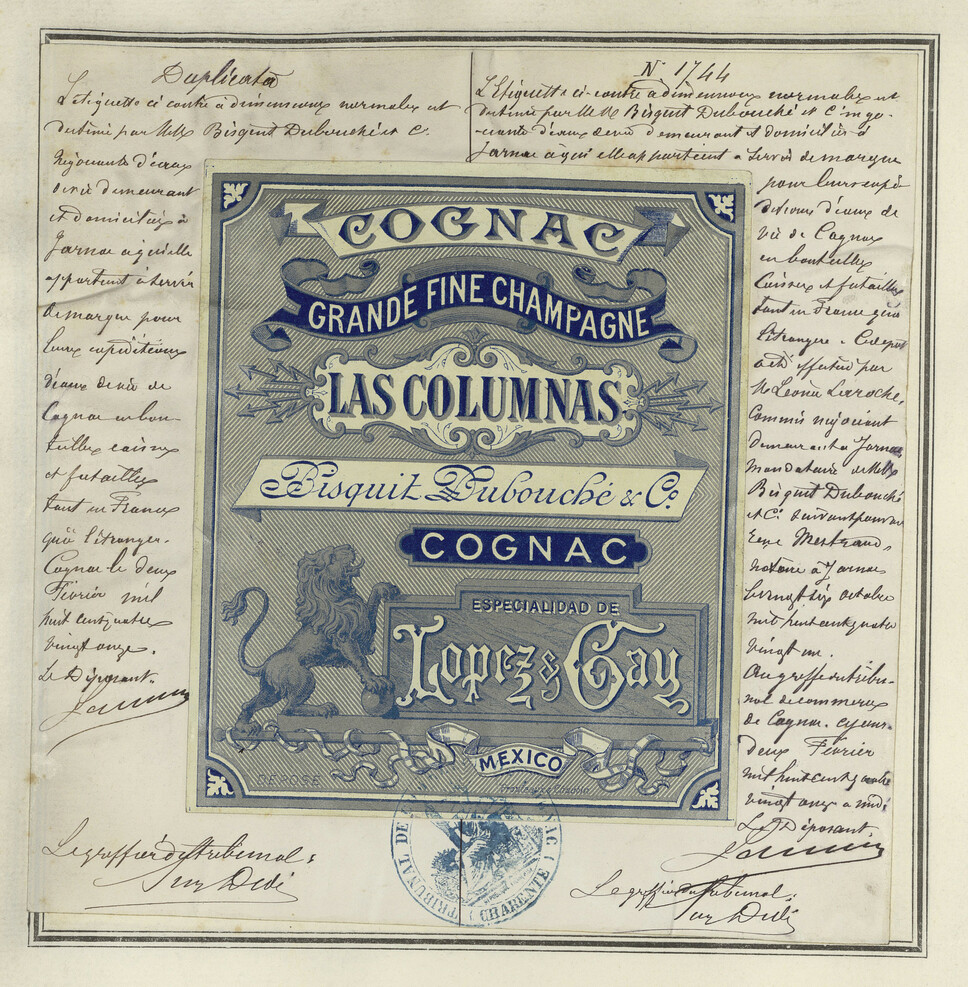 Duplicata
L'étiquette ci contre à dimensions normales est
destiné par MM Bisquit Dubouché et C.
Négociants d'eaux
de vie demeurant
et domiciliés à
Jarnac à qui elle
appartient à servir
de marque pour
leurs expéditions
d'eaux de vie de
Cognac en bou-
teilles caisses
et futailles
tant en France
qu'à l'étranger.
Cognac le deux
Février mil
huit cent quatre
vingt onze.
Le Déposant.
Le greffier du tribunal:
N. 1744
L'Etiquette ci-contre à dimensions normales est
destiné par MM Bisquit Dubouché et C. négo-
ciants d'eaux de vie demeurant et domiciliés à
Jarnac à qui elle appartient à servir de marque
pour leurs expé-
ditions d'eaux de
vie de Cognac
en bouteilles
Caisses et futailles
tant en France qu'à
l'étrangere. Ce depot
a été effectué par
M. Leona Laroche,
Commis négociant
demeurant à Jarnac
Mandataire de MM
Bisquit Dubouché
et C. suivant pouvoir
Mestreau,
notaire à Jarnac
le vingt six octobre
mil huit cent quatre
vingt un.
Au greffe du tribu-
nal de commerce
de Cognac, ce jours
deux Février
mil huit cent quatre
vingt onze a midi
Le Déposant.
Le greffier du tribunal:
COGNAC
GRANDE FINE CHAMPAGNE
LAS COLUMNAS
Bisquit Dubouché & Co.
COGNAC
ESPECIALIDAD DE
Lopez & Gay
MEXICO
DEPOSE
TRIBUNAL DE COGNAC (CHARENTE)